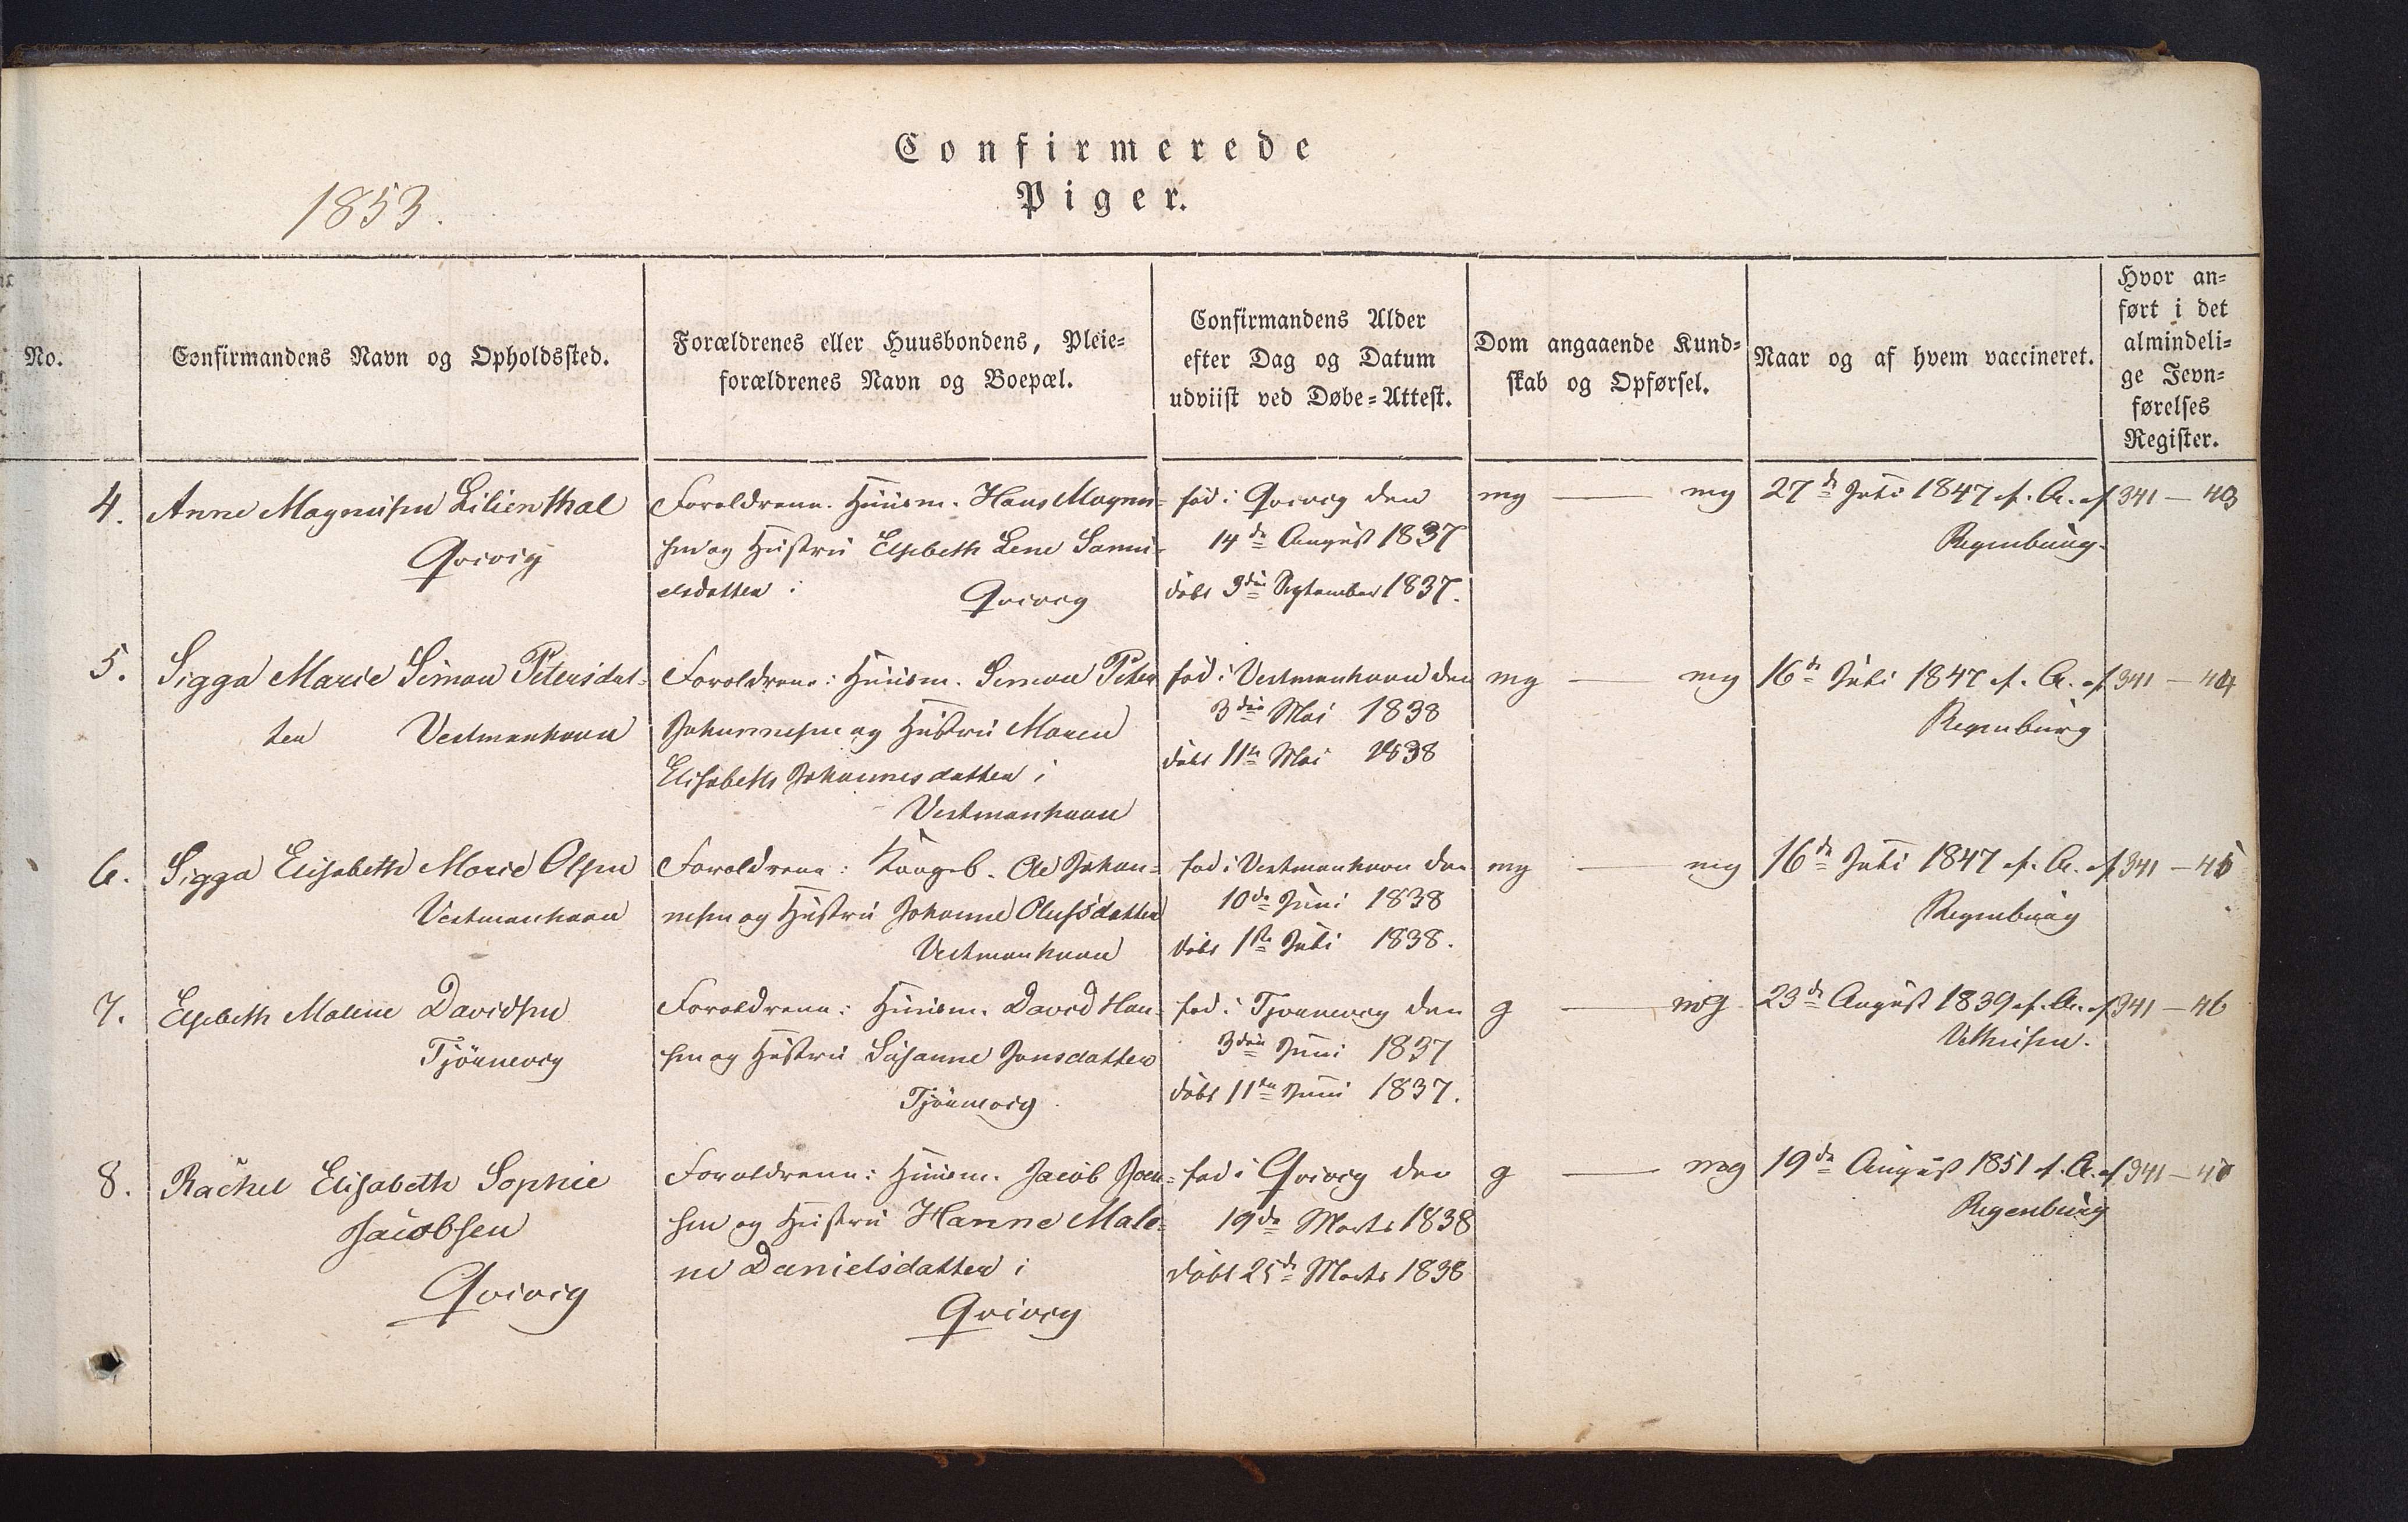 Confirmerede
1853.
Piger.
No.
Confirmandens Navn og Opholdssted.
Forældrenes eller Huusbondens, Pleie-
forældrenes Navn og Boepæl.
Confirmandens Alder
efter Dag og Datum
udviist ved Døbe-Attest.
Dom angaaende Kund-
skab og Opførsel.
Naar og af hvem vaccineret.
Hvor an-
ført i det
almindeli-
ge Jevn-
førelses
Register.
4.
Anne Magnusen Lilienthal
Qvivig
Foreldrene: Huusm. Hans Magnu-
sen og Hustru Elsebeth Lene Samu-
elsdatter i
Qvivig
fød i Qvivig den
14de August 1837
døbt 3die September 1837.
mg — mg
27de Juli 1847 af
Regenburg.
341 — 43
5.
Sigga Marie Simon Petersdat-
ter Vestmanhavn
Foreldrene: Huusm. Simon Peter
Johannesen og Hustru Maren
Elisabeth Johannesdatter i
Vestmanhavn
fød i Vestmanhavn den
3die Mai 1838
døbt 11te Mai 1838
mg — mg
16de Juli 1847 af
Regenburg
341 — 44
6.
Sigga Elisabeth Marie Olsen
Vestmanhavn
Foreldrene: Kongsb. Ole Johan-
nesen og Hustru Johanne Olufsdatter
Vestmanhavn
fød i Vestmanhavn den
10de Juni 1838
døbt 1ste Juli 1838.
mg — mg
16de Juli 1847 af
Regenburg
341 — 45
7.
Elsebeth Malene Davidsen
Tjörnevig
Foreldrene: Huusm. David Han-
sen og Hustru Susanne Jonsdatter
Tjörnevig
fød i Tjörnevig den
3die Juni 1837
døbt 11te Juni 1837.
g — mg
23de August 1839 af
341 — 46
8.
Rachel Elisabeth Sophie
Jacobsen
Qvivig
Foreldrene: Huusm. Jacob Joen-
sen og Hustru Hanne Male-
ne Danielsdatter i
Qvivig
fød i Qvivig den
19de Marts 1838
døbt 25de Marts 1838
g — mg
19de August 1851 af
Regenburg
341 —